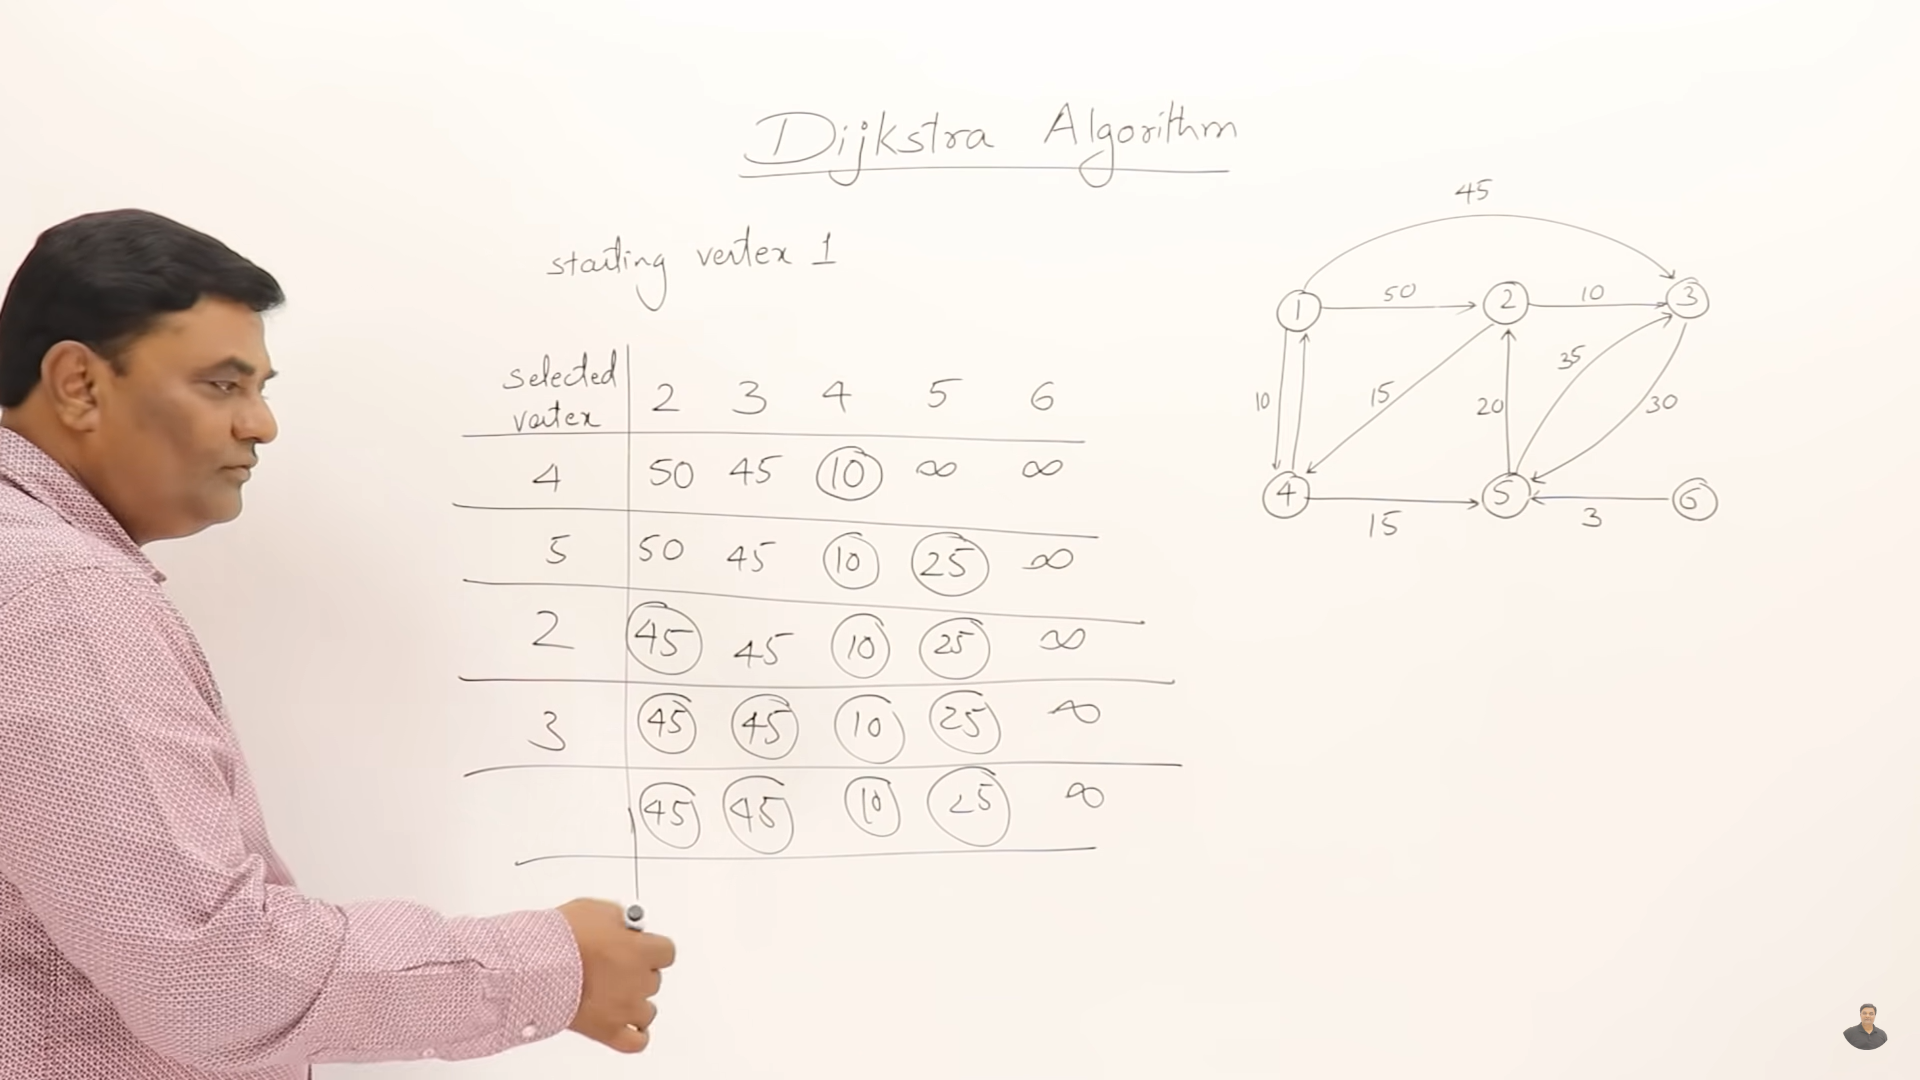 Dijkstra Algorithm
starting vertex 1
selected vertex 2 3 4 5 6
4 50 45 10 ∞ ∞
5 50 45 10 25 ∞
2 45 45 10 25 ∞
3 45 45 10 25 ∞
45 45 10 25 ∞
45
1 50 2 10 3
10 15 20 35 30
4 15 5 3 6